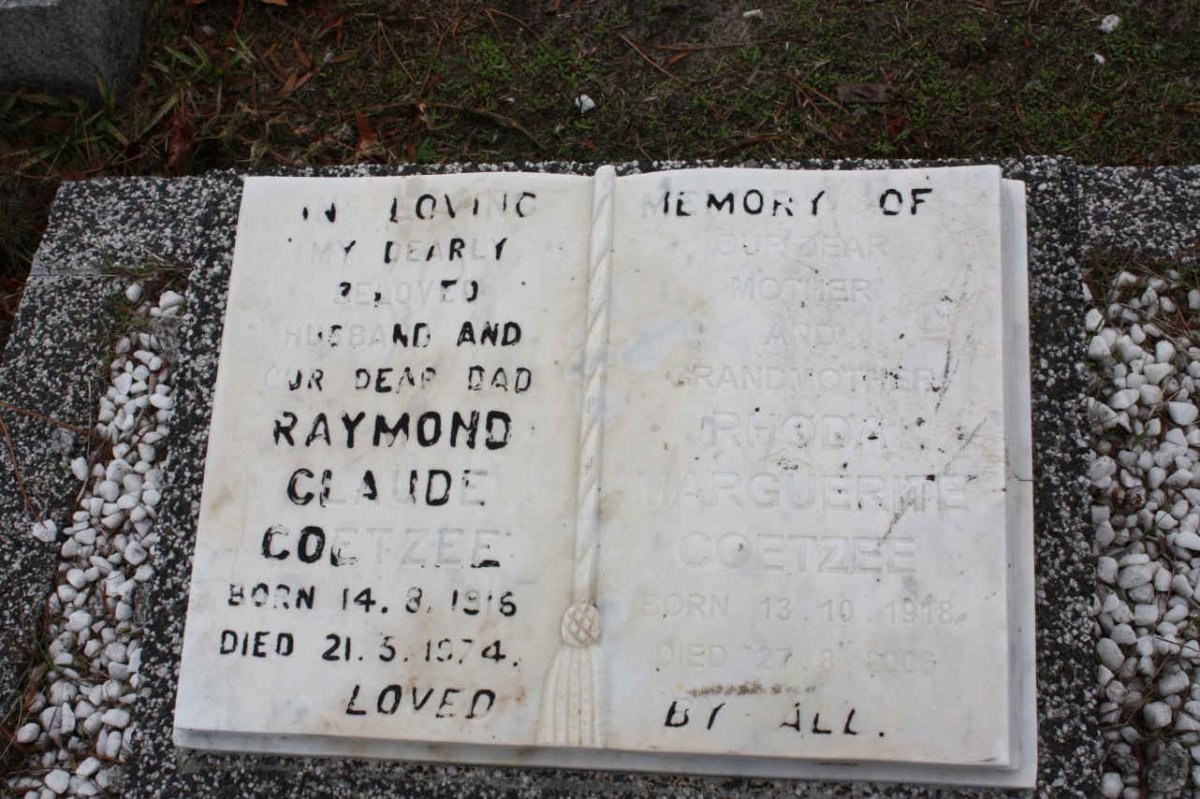 IN LOVING MEMORY OF
MY DEARLY
BELOVED
HUSBAND AND
OUR DEAR DAD
RAYMOND
CLAUDE
COETZEE
BORN 14. 8. 1916
DIED 21. 5. 1974.
OUR DEAR
MOTHER
AND
GRANDMOTHER
RHODA
MARGUERITE
COETZEE
BORN 13. 10. 1918.
DIED 27. 8.
LOVED BY ALL.